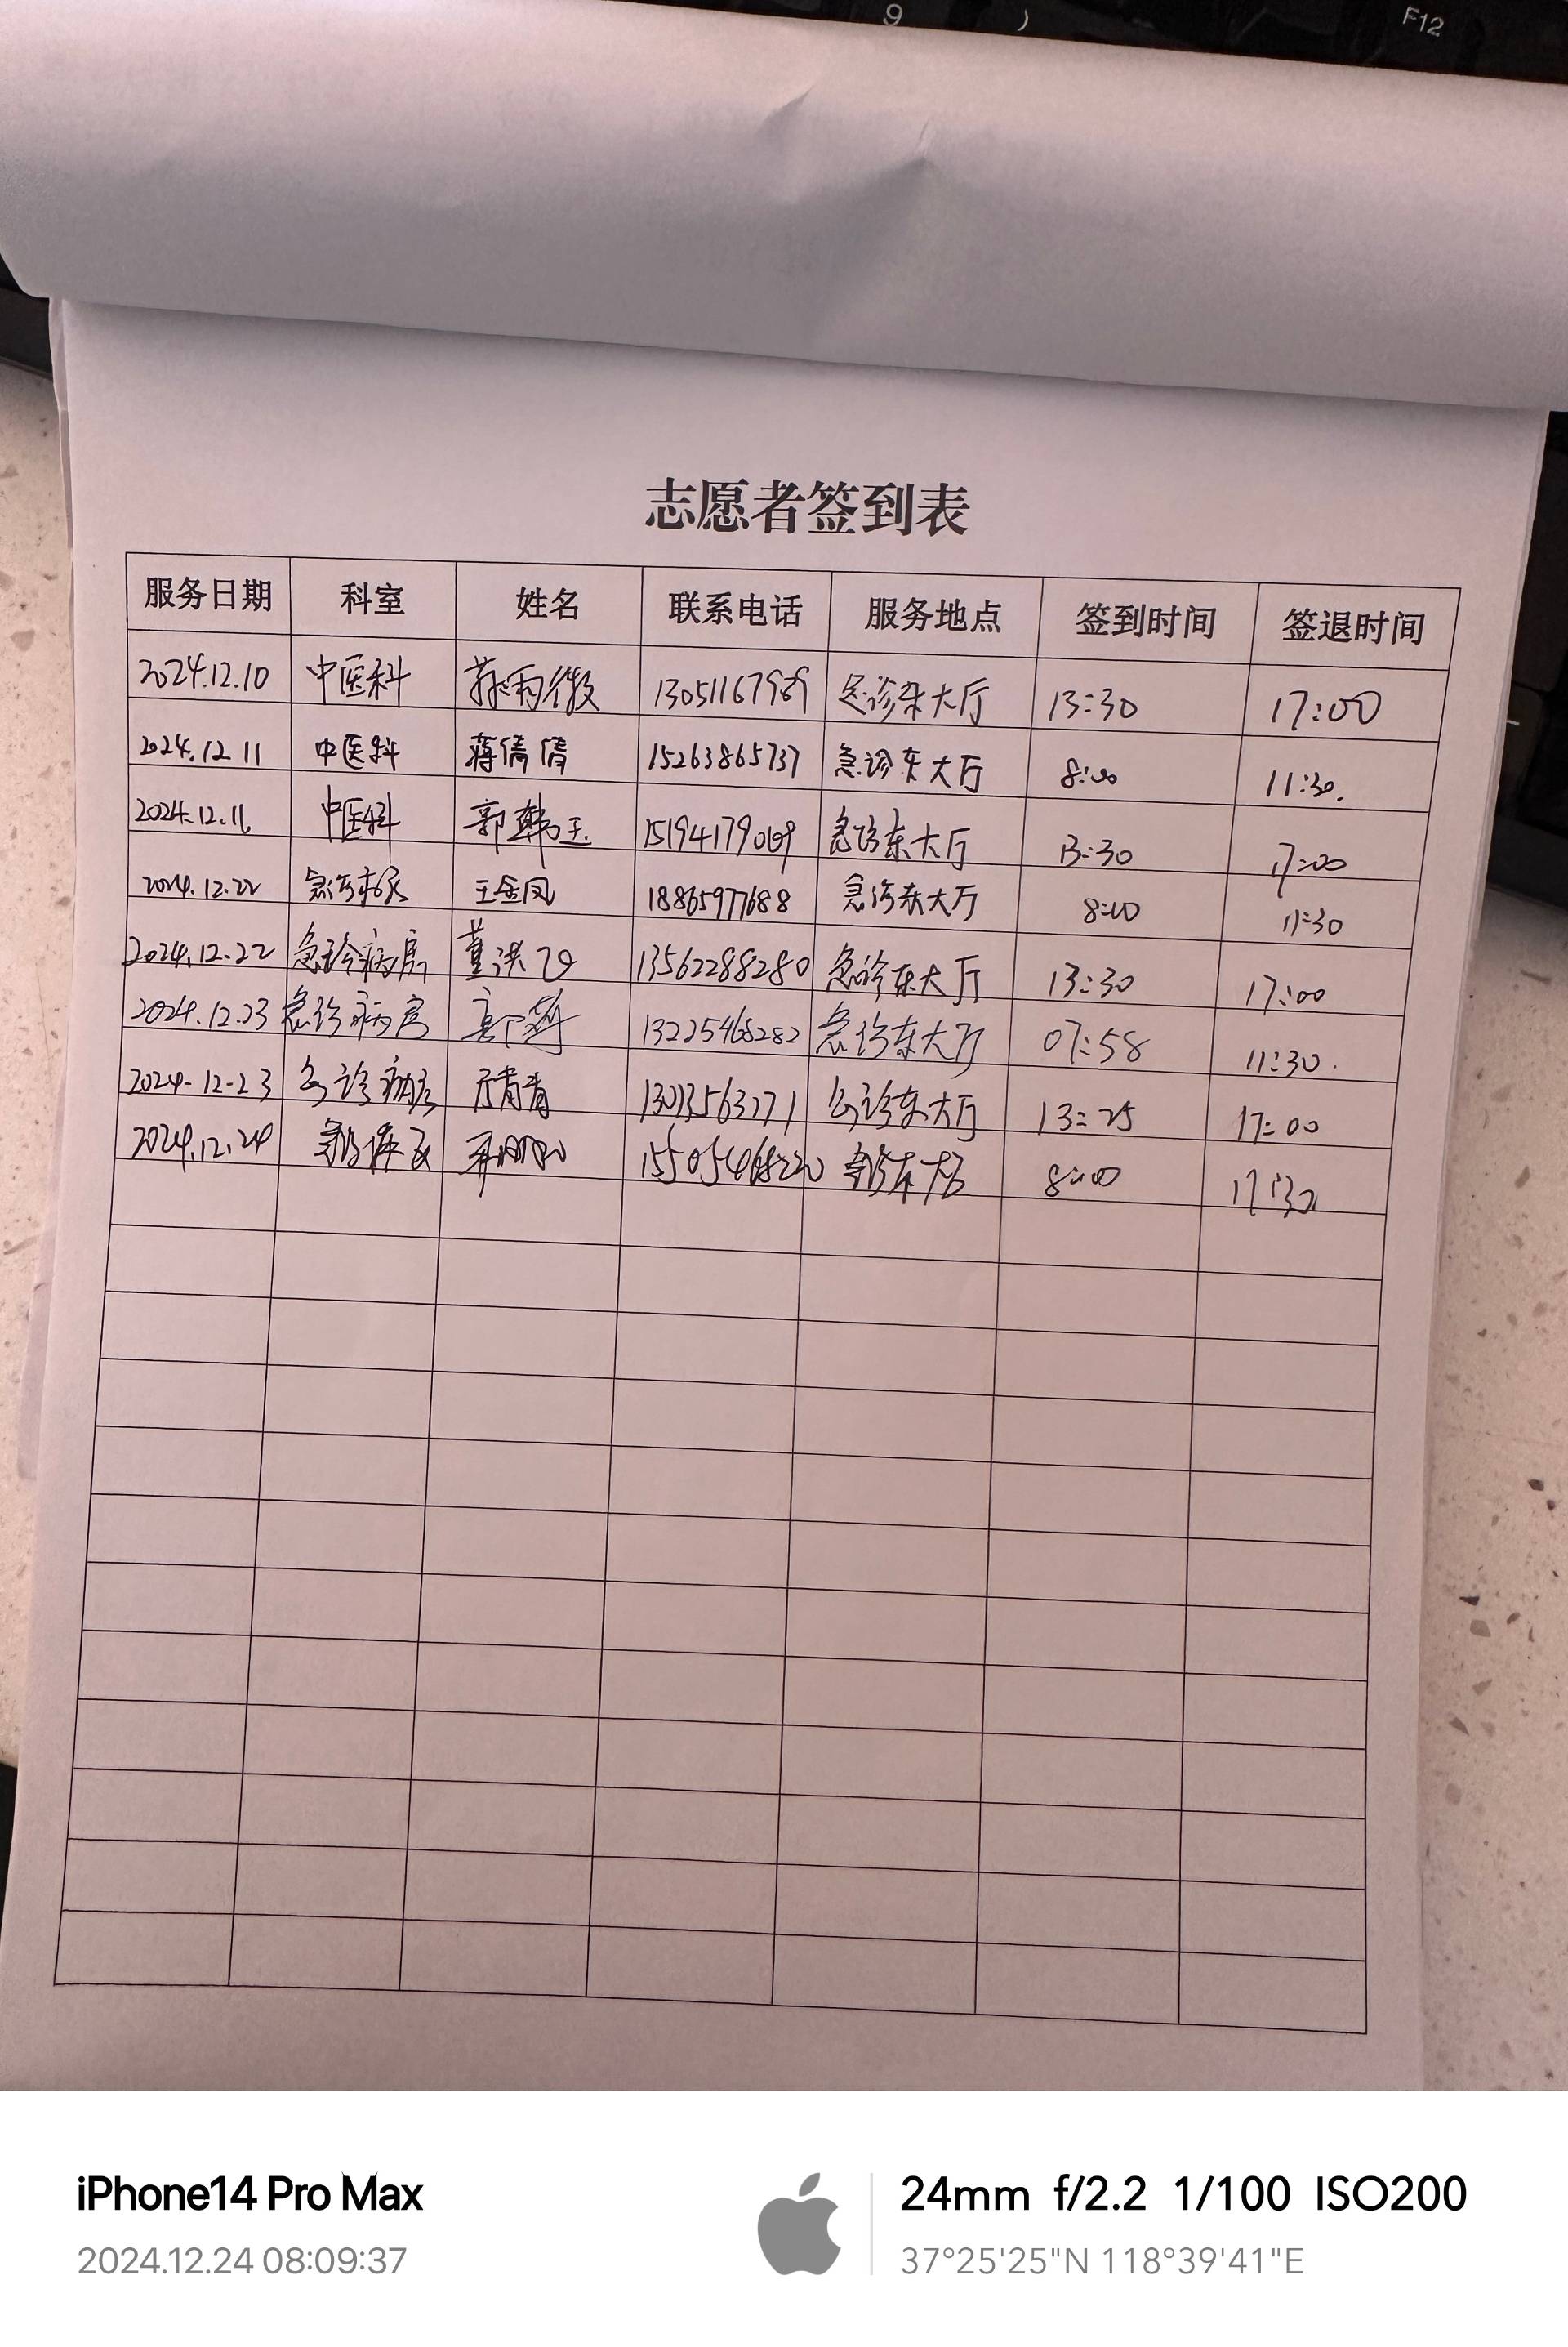 9 ) F12
志愿者签到表
服务日期 科室 姓名 联系电话 服务地点 签到时间 签退时间
2024.12.10 中医科 13051167989 急诊东大厅 13:30 17:00
2024.12.11 中医科 蒋倩倩 15263865737 急诊东大厅 8:00 11:30.
2024.12.11 中医科 郭韩玉 15194179069 急诊东大厅 13:30 17:00
2024.12.22 急诊病房 王金凤 18865977688 急诊东大厅 8:00 11:30
2024.12.22 急诊病房 董洪 13562288280 急诊东大厅 13:30 17:00
2024.12.23 急诊病房 13225468282 急诊东大厅 07:58 11:30.
2024-12-23 急诊病房 青青 急诊东大厅 13:25 17:00
2024.12.24 急诊 15505468220 急诊东大厅 8:00 11:30
iPhone14 Pro Max
24mm f/2.2 1/100 ISO200
2024.12.24 08:09:37
37°25'25"N 118°39'41"E